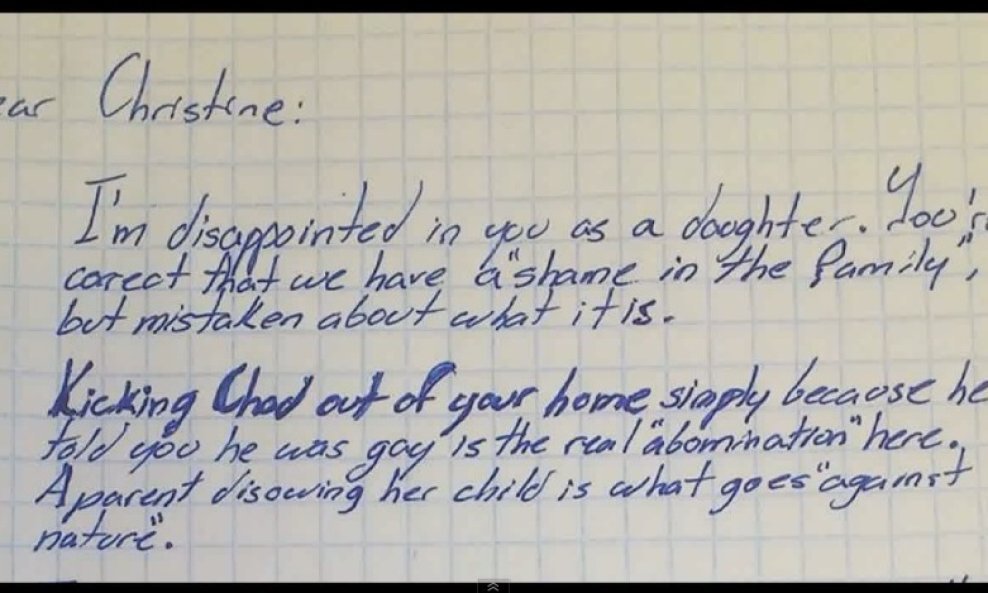 ear Christine:
I'm disappointed in you as a daughter. You'r
correct that we have a "shame in the family",
but mistaken about what it is.
Kicking Chad out of your home simply because he
told you he was gay is the real "abomination" here.
A parent disowing her child is what goes "against
nature".